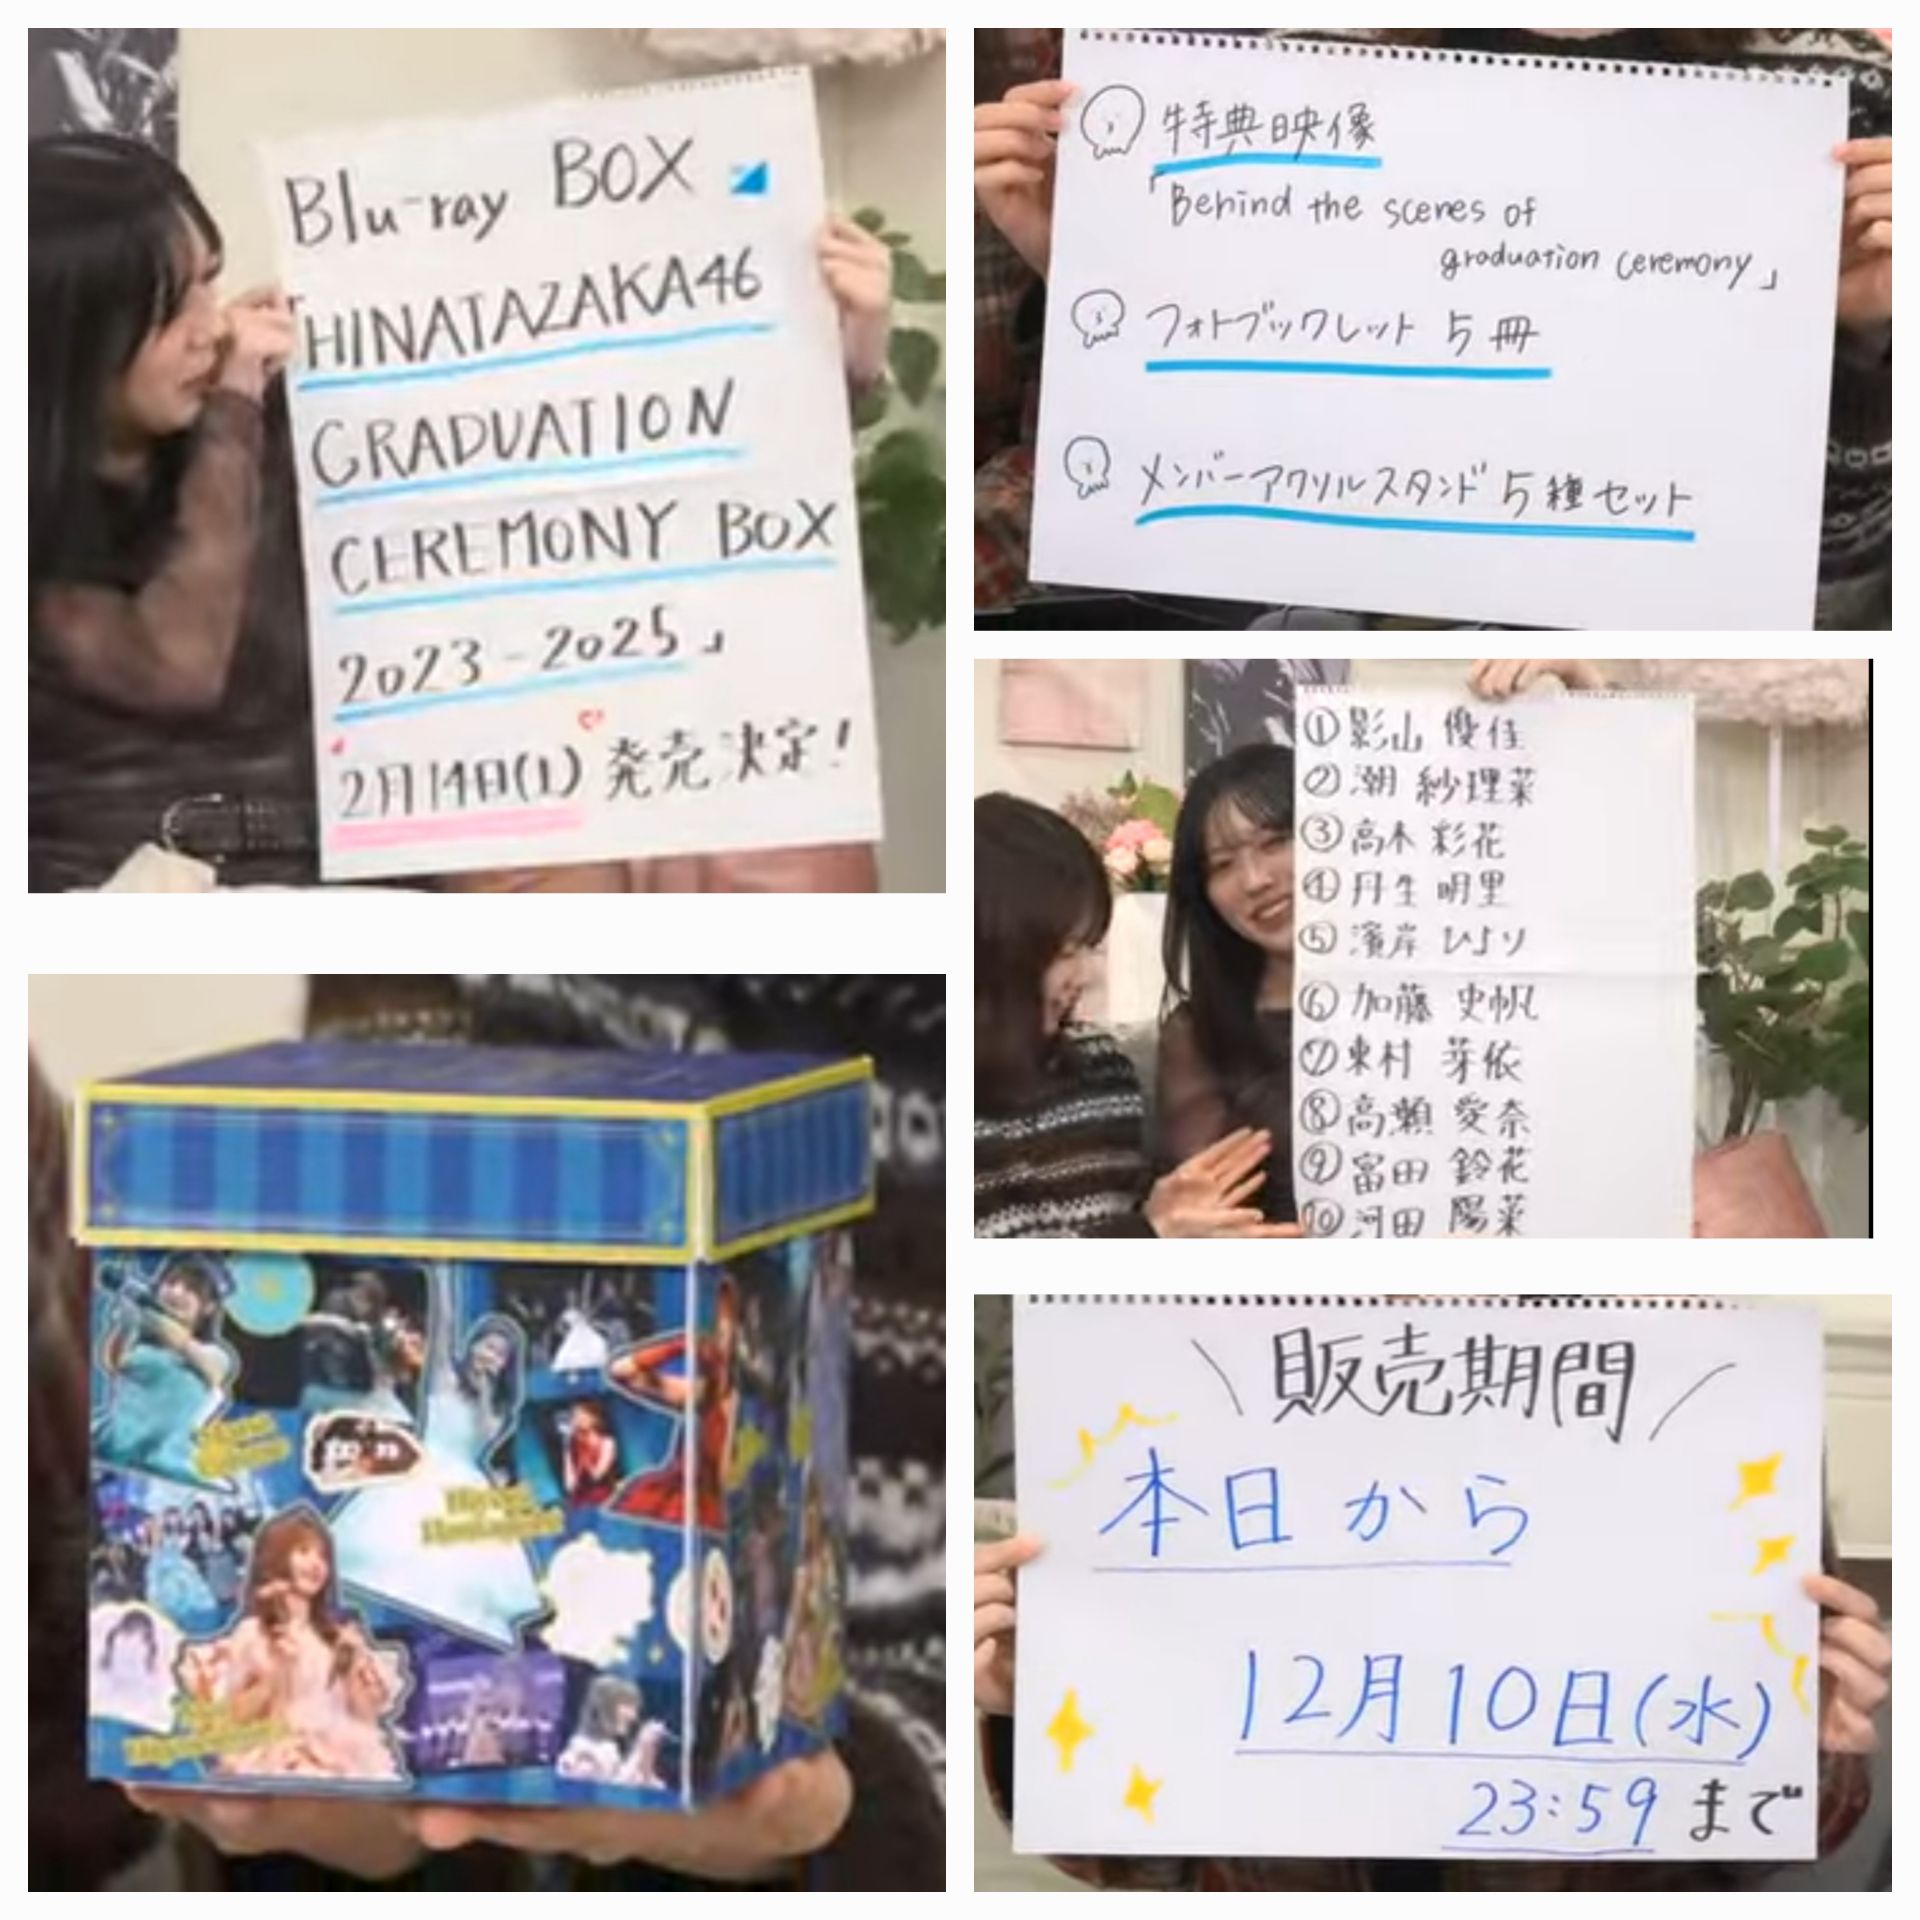 Blu-ray BOX
「HINATAZAKA46
GRADUATION
CEREMONY BOX
2023-2025」
2月14日(土) 発売決定!
特典映像
「Behind the scenes of
graduation ceremony」
フォトブックレット 5冊
メンバーアクリルスタンド 5種セット
①影山 優佳
②潮 紗理菜
③高本 彩花
④丹生 明里
⑤濱岸 ひより
⑥加藤 史帆
⑦東村 芽依
⑧高瀬 愛奈
⑨富田 鈴花
⑩河田 陽菜
販売期間
本日から
12月10日(水)
23:59 まで